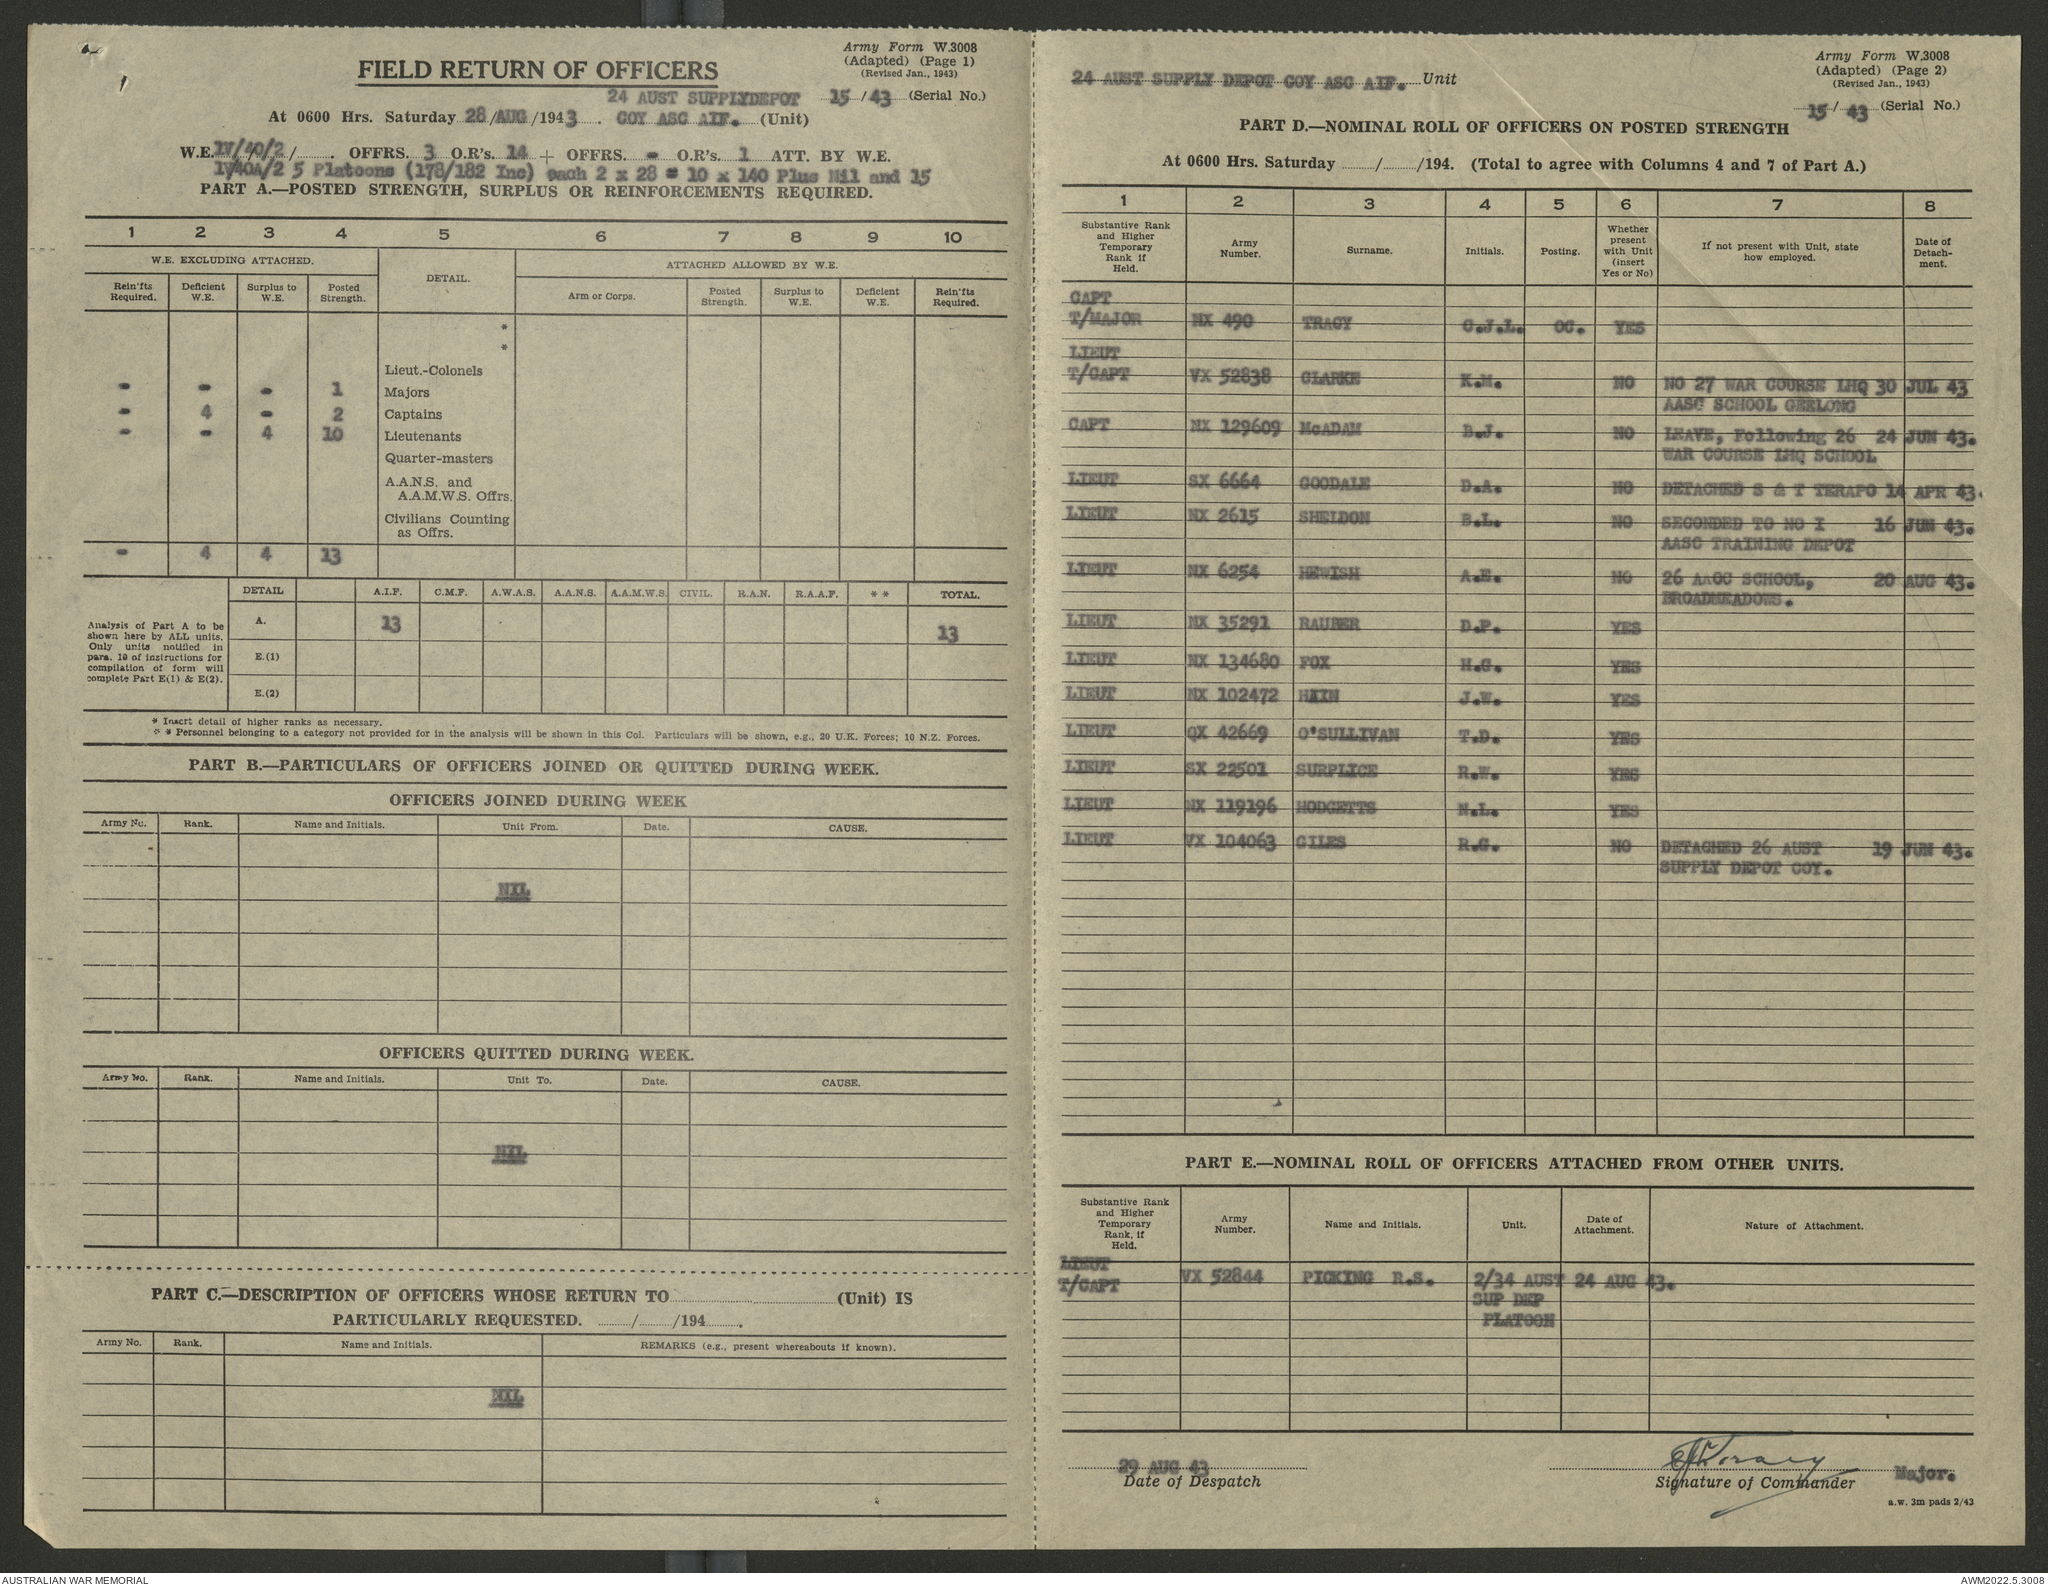 Army Form W.3008
(Adapted) (Page 1)
(Revised Jan., 1943)
FIELD RETURN OF OFFICERS
24 AUST SUPPLYDEPOT 15/43 (Serial No.)
At 0600 Hrs. Saturday 28/AUG/1943. COY ASC AIF. (Unit)
W.E. IV/40/2/ . OFFRS. 3 O.R's. 14 + OFFRS. - O.R's. 1 ATT. BY W.E.
IV40A/2 5 Platoons (178/182 Inc) each 2 x 28 = 10 x 140 Plus Nil and 15
PART A.—POSTED STRENGTH, SURPLUS OR REINFORCEMENTS REQUIRED.
1 2 3 4 5 6 7 8 9 10
W.E. EXCLUDING ATTACHED. DETAIL. ATTACHED ALLOWED BY W.E.
Rein'fts Required. Deficient W.E. Surplus to W.E. Posted Strength. Arm or Corps. Posted Strength. Surplus to W.E. Deficient W.E. Rein'fts Required.
*
*
Lieut.-Colonels
- - - 1 Majors
- 4 - 2 Captains
- - 4 10 Lieutenants
Quarter-masters
A.A.N.S. and
A.A.M.W.S. Offrs.
Civilians Counting
as Offrs.
- 4 4 13
DETAIL A.I.F. C.M.F. A.W.A.S. A.A.N.S. A.A.M.W.S. CIVIL. R.A.N. R.A.A.F. * * TOTAL.
Analysis of Part A to be
shown here by ALL units.
Only units notified in
para. 10 of instructions for
compilation of form will
complete Part E(1) & E(2).
A. 13 13
E.(1)
E.(2)
* Insert detail of higher ranks as necessary.
* * Personnel belonging to a category not provided for in the analysis will be shown in this Col. Particulars will be shown, e.g., 20 U.K. Forces; 10 N.Z. Forces.
PART B.—PARTICULARS OF OFFICERS JOINED OR QUITTED DURING WEEK.
OFFICERS JOINED DURING WEEK
Army No. Rank. Name and Initials. Unit From. Date. CAUSE.
NIL
OFFICERS QUITTED DURING WEEK.
Army No. Rank. Name and Initials. Unit To. Date. CAUSE.
NIL
PART C.—DESCRIPTION OF OFFICERS WHOSE RETURN TO (Unit) IS
PARTICULARLY REQUESTED. / /194 .
Army No. Rank. Name and Initials. REMARKS (e.g., present whereabouts if known).
NIL
Army Form W.3008
(Adapted) (Page 2)
(Revised Jan., 1943)
24 AUST SUPPLY DEPOT COY ASC AIF. Unit
15/ 43 (Serial No.)
PART D.—NOMINAL ROLL OF OFFICERS ON POSTED STRENGTH
At 0600 Hrs. Saturday / /194. (Total to agree with Columns 4 and 7 of Part A.)
1 2 3 4 5 6 7 8
Substantive Rank and Higher Temporary Rank if Held. Army Number. Surname. Initials. Posting. Whether present with Unit (insert Yes or No) If not present with Unit, state how employed. Date of Detach-ment.
CAPT
T/MAJOR NX 490 TRACY C.J.L. OC. YES
LIEUT
T/CAPT VX 52838 CLARKE K.M. NO NO 27 WAR COURSE LHQ 30 JUL 43
AASC SCHOOL GEELONG
CAPT NX 129609 McADAM B.J. NO LEAVE, Following 26 24 JUN 43.
WAR COURSE LHQ SCHOOL
LIEUT SX 6664 GOODALE D.A. NO DETACHED S & T TERAPO 14 APR 43.
LIEUT NX 2615 SHELDON B.L. NO SECONDED TO NO I 16 JUN 43.
AASC TRAINING DEPOT
LIEUT NX 6254 HEWISH A.E. NO 26 AAOC SCHOOL, 20 AUG 43.
BROADMEADOWS.
LIEUT NX 35291 RAUBER D.P. YES
LIEUT NX 134680 FOX H.G. YES
LIEUT NX 102472 HAIN J.W. YES
LIEUT QX 42669 O'SULLIVAN T.D. YES
LIEUT SX 22501 SURPLICE R.W. YES
LIEUT NX 119196 HODGETTS N.L. YES
LIEUT VX 104063 GILES R.G. NO DETACHED 26 AUST 19 JUN 43.
SUPPLY DEPOT COY.
PART E.—NOMINAL ROLL OF OFFICERS ATTACHED FROM OTHER UNITS.
Substantive Rank and Higher Temporary Rank, if Held. Army Number. Name and Initials. Unit. Date of Attachment. Nature of Attachment.
LIEUT
T/CAPT VX 52844 PICKING R.S. 2/34 AUST 24 AUG 43.
SUP DEP
PLATOON
29 AUG 43
Date of Despatch
CJLTracy Major.
Signature of Commander
a.w. 3m pads 2/43
AUSTRALIAN WAR MEMORIAL
AWM2022.5.3008